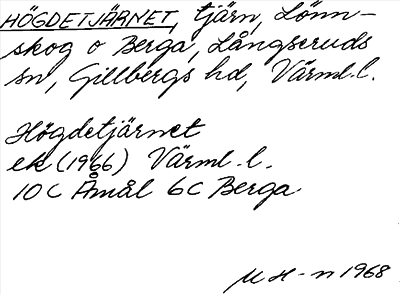 HÖGDETJÄRNET, tjärn, Lönn-
skog o Berga, Långseruds
sn, Gillbergs hd, Värml. l.
Högdetjärnet
ek (1966) Värml. l.
10 C Åmål 6 C Berga
M H-n 1968